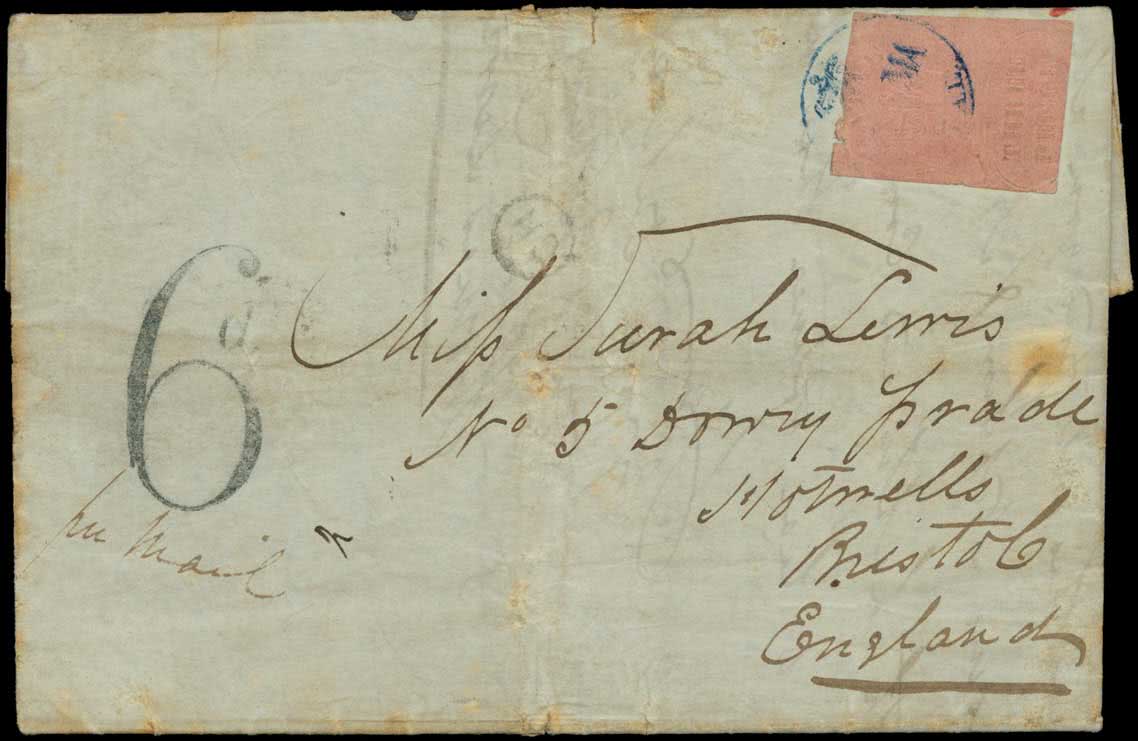 6
d.
Miss Sarah Lewis
No 5 Dowry prade
Hotwells
Bristol
England
per Mail